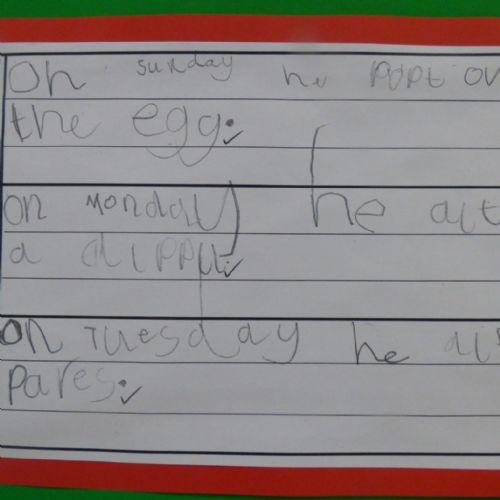 On sunday he popt
the egg.
on monday he
a
on Tuesday he
Pares.